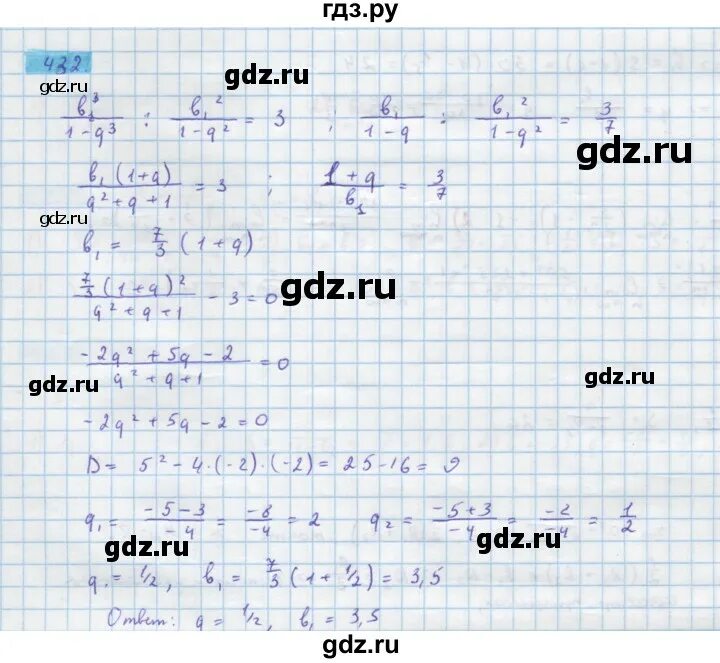 гдз.ру
432
gdz.ru
b₁³/(1-q³) : b₁²/(1-q²) = 3 ; b₁/(1-q) : b₁²/(1-q²) = 3/7
gdz.ru
b₁(1+q)/(q²+q+1) = 3 ; (1+q)/b₁ = 3/7
gdz.ru
b₁ = 7/3 (1+q)
7/3(1+q)²/(q²+q+1) - 3 = 0
gdz.ru
(-2q²+5q-2)/(q²+q+1) = 0
gdz.ru
gdz.ru
-2q²+5q-2=0
D = 5²-4·(-2)·(-2) = 25-16 = 9
q₁ = (-5-3)/(-4) = (-8)/(-4) = 2 q₂ = (-5+3)/(-4) = (-2)/(-4) = 1/2
gdz.ru
gdz.ru
q = 1/2, b₁ = 7/3 (1+1/2) = 3,5
Ответ: q = 1/2, b₁ = 3,5
gdz.ru